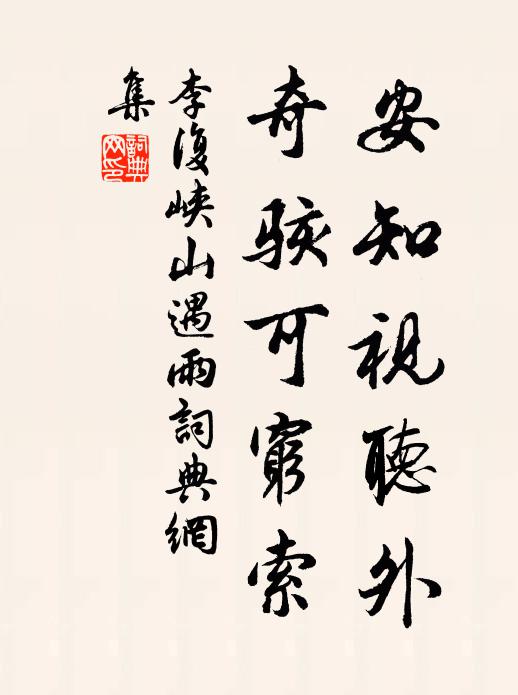 安知視聽外
奇駭可窮索
李復峽山遇雨詞典網
集
詞典網印